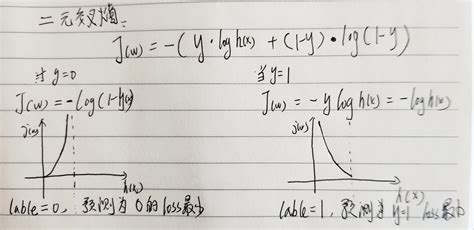 二元交叉熵:
J(w) = -( y·log h(x) + (1-y)·log(1-y)
当 y=0
当 y=1
J(w) = -log(1-y(x)
J(w) = -y log h(x) = -log h(x)
J(w)
J(w)
h(x)
h(x)
lable=0, 预测为 0 的 loss最小
lable=1, 预测为 y=1 loss最小